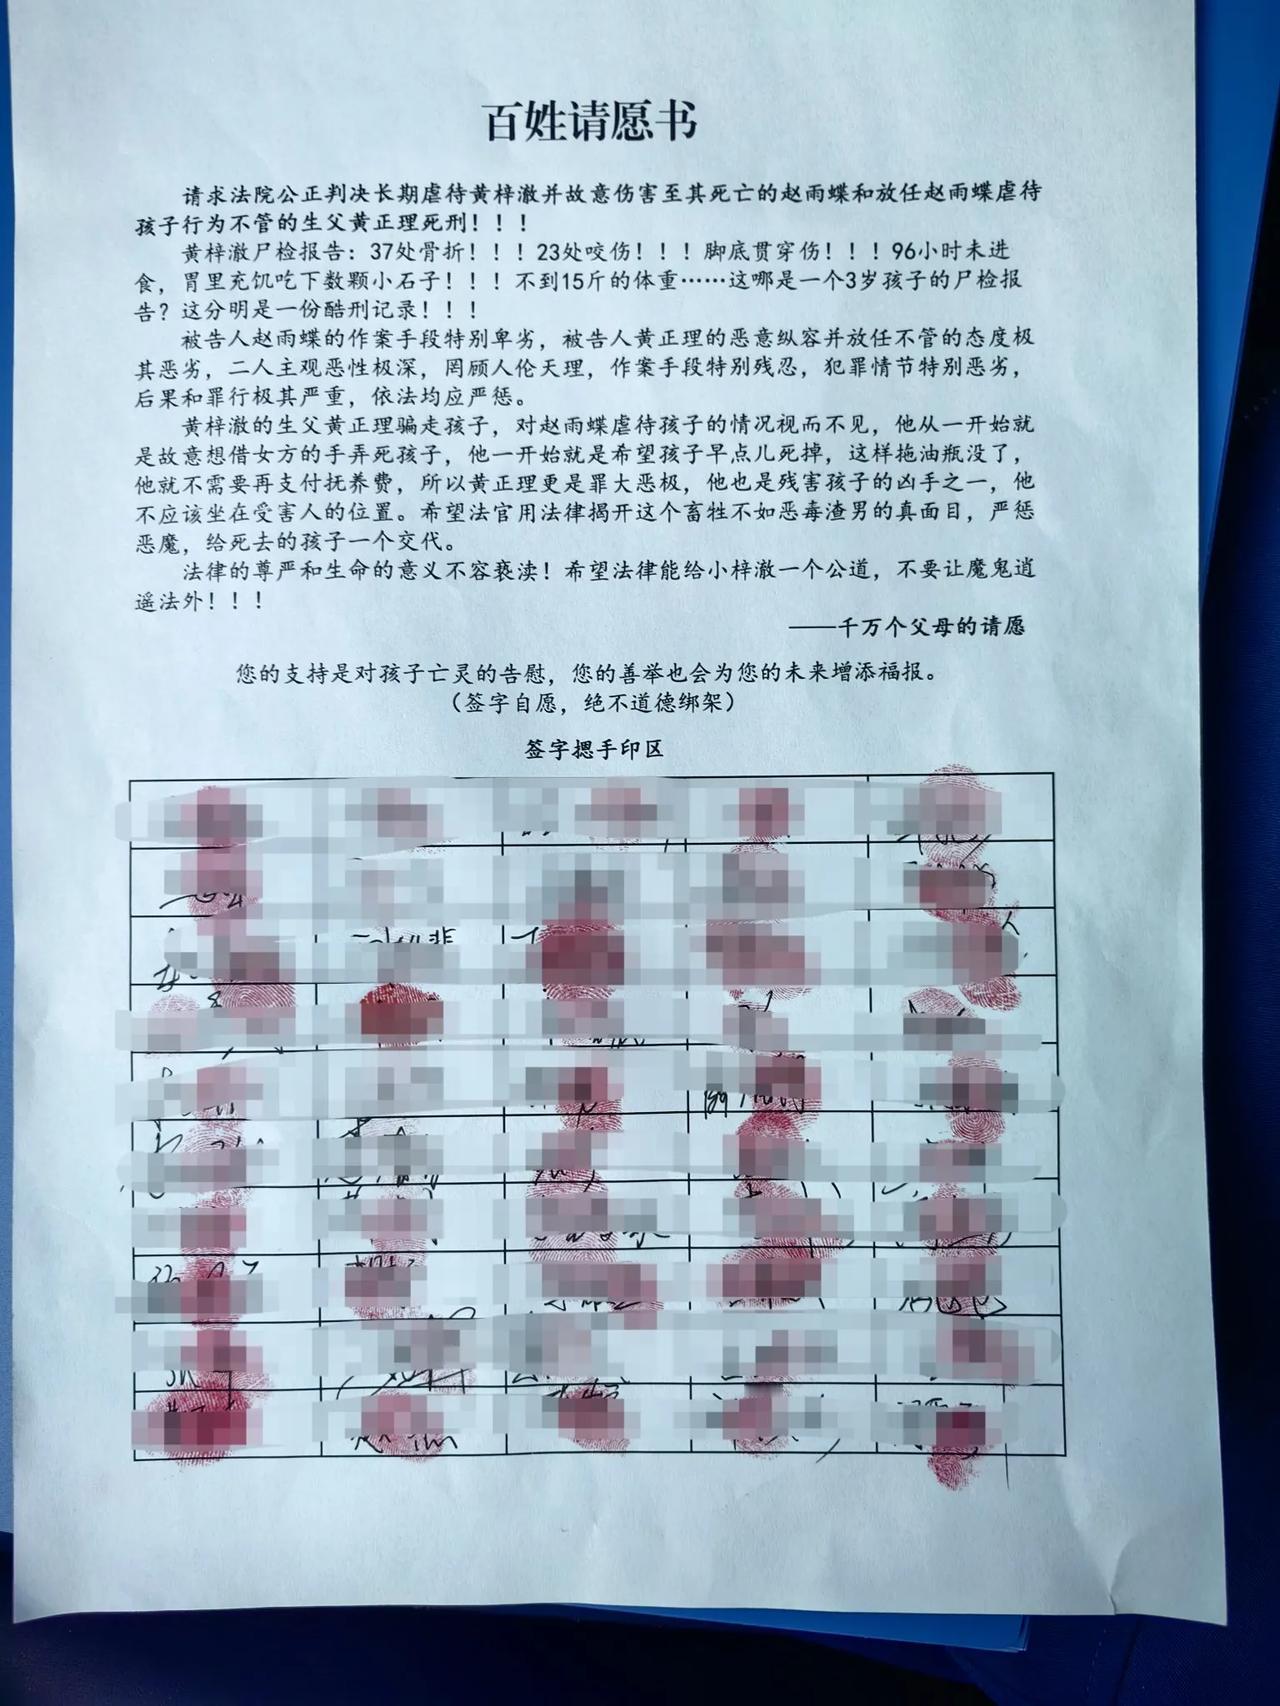 百姓请愿书
请求法院公正判决长期虐待黄梓澈并故意伤害至其死亡的赵雨蝶和放任赵雨蝶虐待
孩子行为不管的生父黄正理死刑！！！
黄梓澈尸检报告：37处骨折！！！23处咬伤！！！脚底贯穿伤！！！96小时未进
食，胃里充饥吃下数颗小石子！！！不到15斤的体重……这哪是一个3岁孩子的尸检报
告？这分明是一份酷刑记录！！！
被告人赵雨蝶的作案手段特别卑劣，被告人黄正理的恶意纵容并放任不管的态度极
其恶劣，二人主观恶性极深，罔顾人伦天理，作案手段特别残忍，犯罪情节特别恶劣，
后果和罪行极其严重，依法均应严惩。
黄梓澈的生父黄正理骗走孩子，对赵雨蝶虐待孩子的情况视而不见，他从一开始就
是故意想借女方的手弄死孩子，他一开始就是希望孩子早点儿死掉，这样拖油瓶没了，
他就不需要再支付抚养费，所以黄正理更是罪大恶极，他也是残害孩子的凶手之一，他
不应该坐在受害人的位置。希望法官用法律揭开这个畜牲不如恶毒渣男的真面目，严惩
恶魔，给死去的孩子一个交代。
法律的尊严和生命的意义不容亵渎！希望法律能给小梓澈一个公道，不要让魔鬼逍
遥法外！！！
——千万个父母的请愿
您的支持是对孩子亡灵的告慰，您的善举也会为您的未来增添福报。
（签字自愿，绝不道德绑架）
签字摁手印区